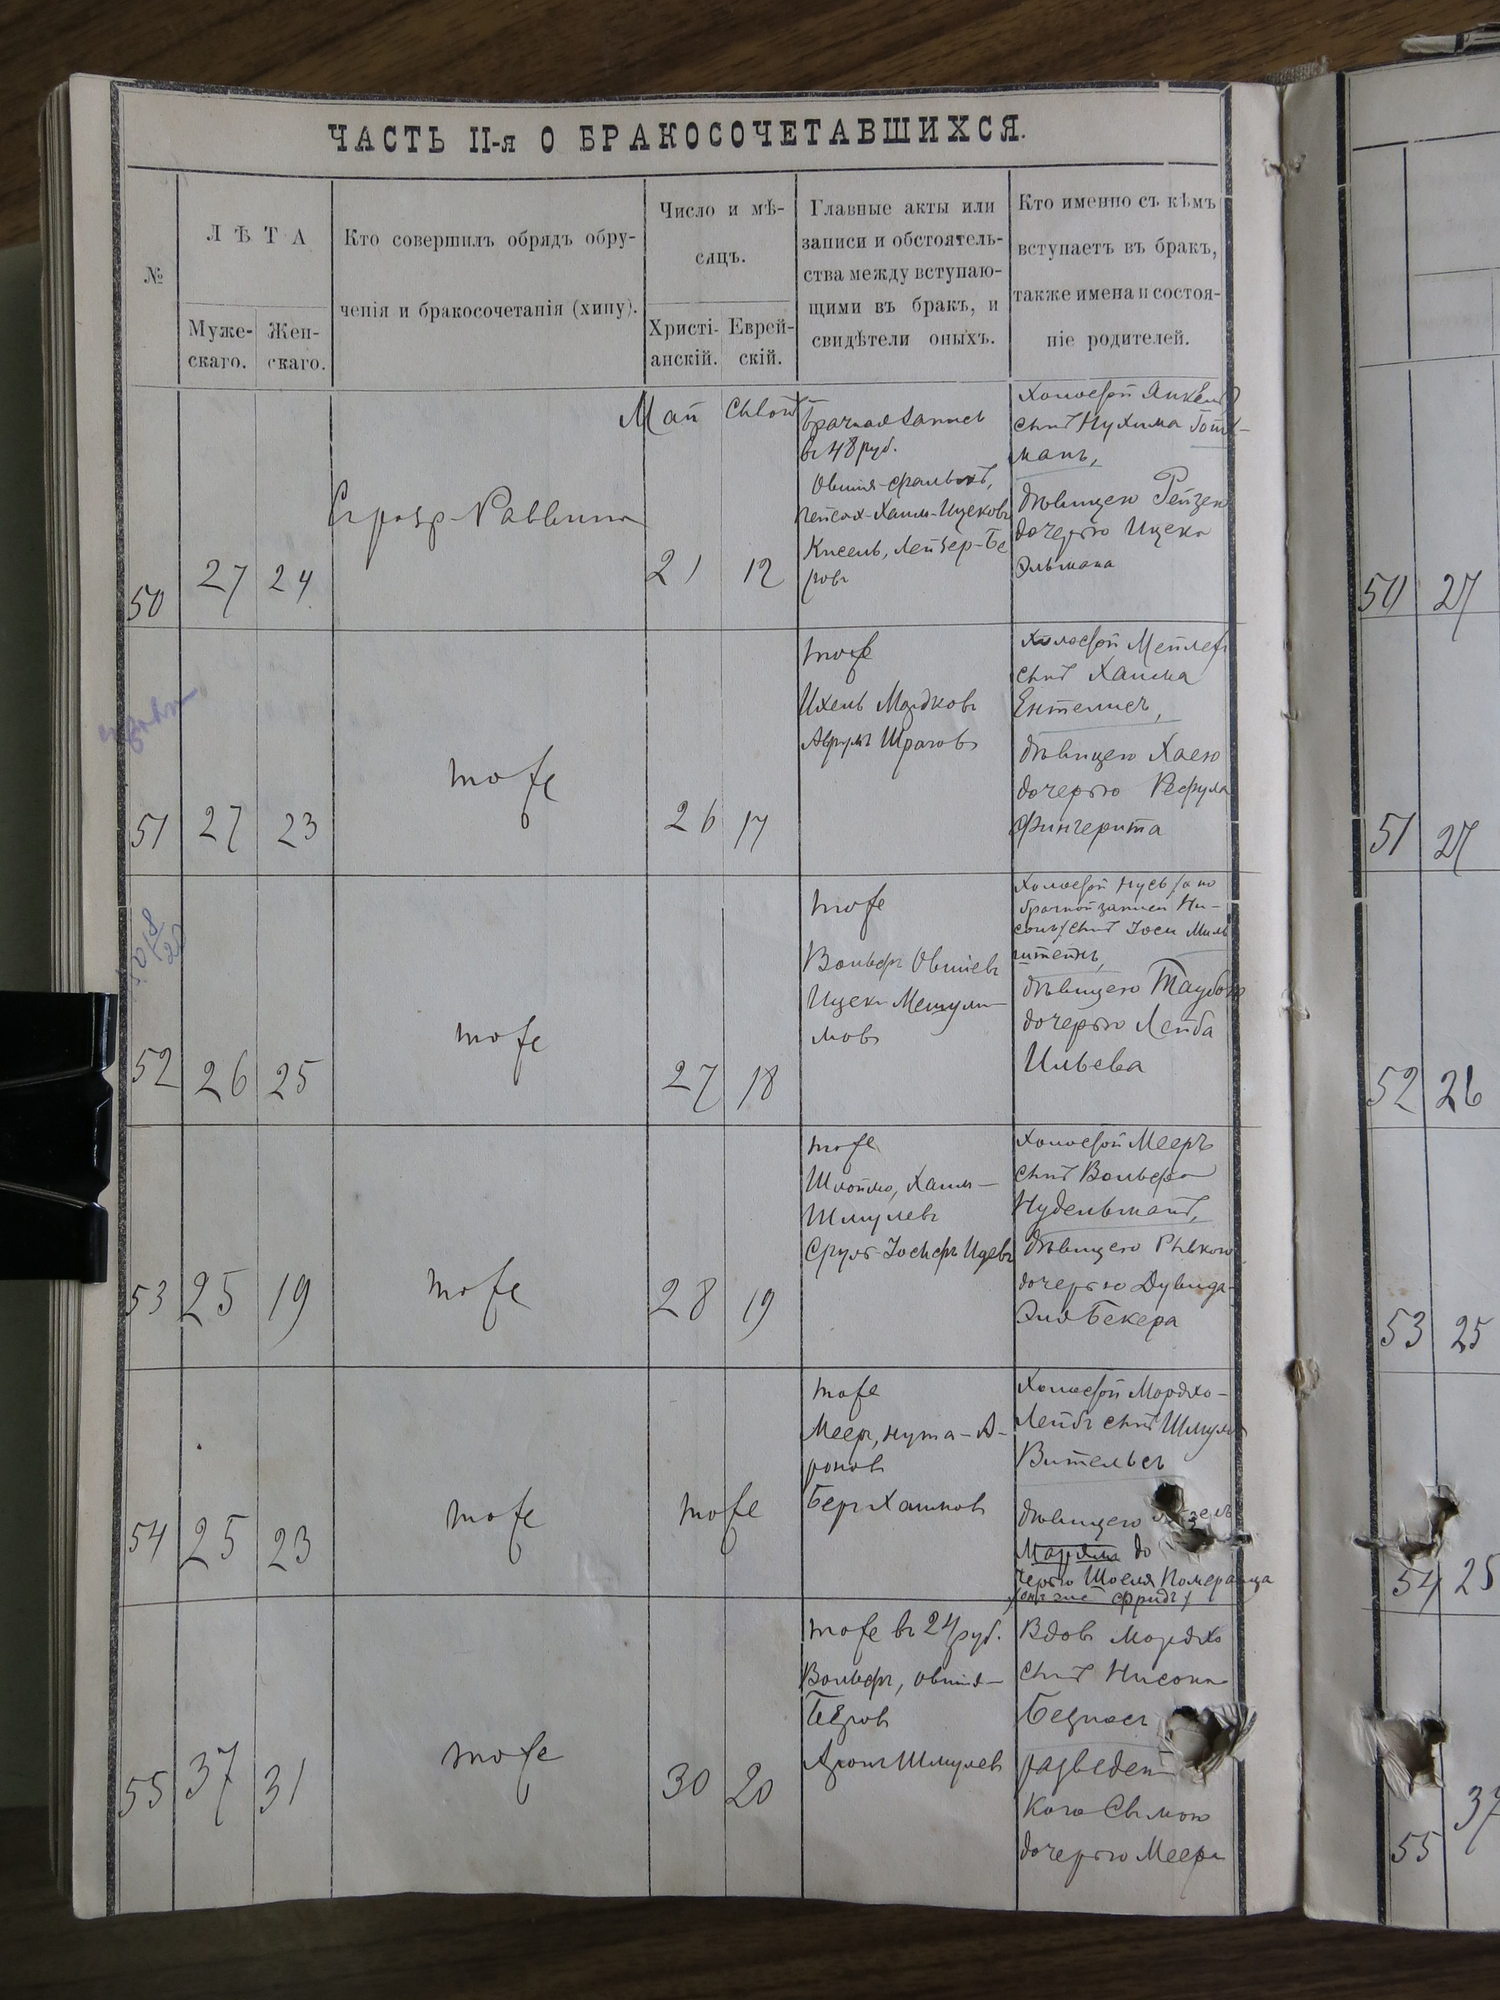 ЧАСТЬ II-я О БРАКОСОЧЕТАВШИХСЯ.
№
ЛѢТА
Муже-
скаго.
Жен-
скаго.
Кто совершилъ обрядъ обру-
ченія и бракосочетанія (хипу).
Число и мѣ-
сяцъ.
Христі-
анскій.
Еврей-
скій.
Главные акты или
записи и обстоятель-
ства между вступаю-
щими въ бракъ, и
свидѣтели оныхъ.
Кто именно съ кѣмъ
вступаетъ въ бракъ,
также имена и состоя-
ніе родителей.
50
27
24
Май
21
12
Брачная запись
въ 48 руб.
Овшія-
Пейсах-Хаим-Ицковъ
Кисель, Лейзер-Бе
ровъ
Холостой Янкель
сынъ Нухима Гойх-
манъ,
дѣвицею Рейзею
дочерью Ицека
Эльмана
51
27
23
тоже
26
17
тоже
Ихель Мордковъ
Аврумъ Шраговъ
Холостой Мейлех
сынъ Хаима
Ентелисъ,
дѣвицею Хаею
дочерью Рефула
Фингерита
52
26
25
тоже
27
18
тоже
Вольфъ Овшіевъ
Ицекъ Мешули-
мовъ
Холостой Нусъ /а по
брачной записи Ни-
сонъ/ сынъ Іоси Миль
штейнъ,
дѣвицею Таубою
дочерью Лейба
Ильева
53
25
19
тоже
28
19
тоже
Шлоймо, Хаим-
Шмулевъ
Сруль-Іосифъ Ицевъ
Холостой Мееръ
сынъ Вольфа
Нудельманъ,
дѣвицею Рывкою
дочерью Дувида-
Эля Бекера
54
25
23
тоже
тоже
тоже
Меер, Нута-А-
роновъ
Беръ Хаимовъ
Холостой Мордко-
Лейбъ сынъ Шмуля
Вительсъ
дѣвицею
Марьямъ до
черью Шоеля Померанца
55
37
31
тоже
30
20
тоже въ 24 руб.
Вольфъ, Овшія-
Беров
Аронъ Шмулев
Вдовъ Мордко
сынъ Нисона
дочерью Меера
50
27
51
27
52
26
53
25
54
25
55
37